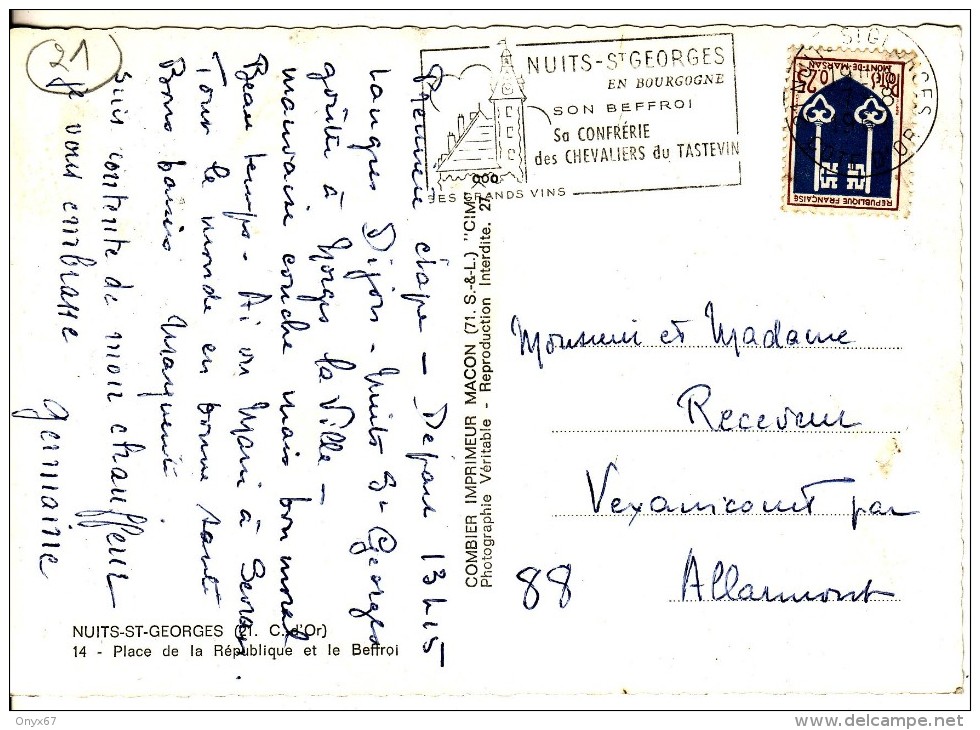 21
NUITS-ST GEORGES
EN BOURGOGNE
SON BEFFROI
Sa CONFRÉRIE
des CHEVALIERS du TASTEVIN
SES GRANDS VINS
MONT-DE-MARSAN
0,25
RÉPUBLIQUE FRANÇAISE
Première étape - Départ 13h15
Langres Dijon - Nuits St Georges
goûter à Norges la Ville -
mauvaise couche mais bon moral
Beau temps - Ai vu Mami à
Tous le monde en bonne santé
Bons baisers Marguerite
suis contente de mon chauffeur
Je vous embrasse
Germaine
COMBIER IMPRIMEUR MACON (71. S.-&-L.) "CIM"
Photographie Véritable - Reproduction Interdite. 27
Monsieur et Madame
Receveur
Vexaincourt par
88 Allarmont
NUITS-ST-GEORGES (21. C.-d'Or)
14 - Place de la République et le Beffroi
Onyx67
www.delcampe.net